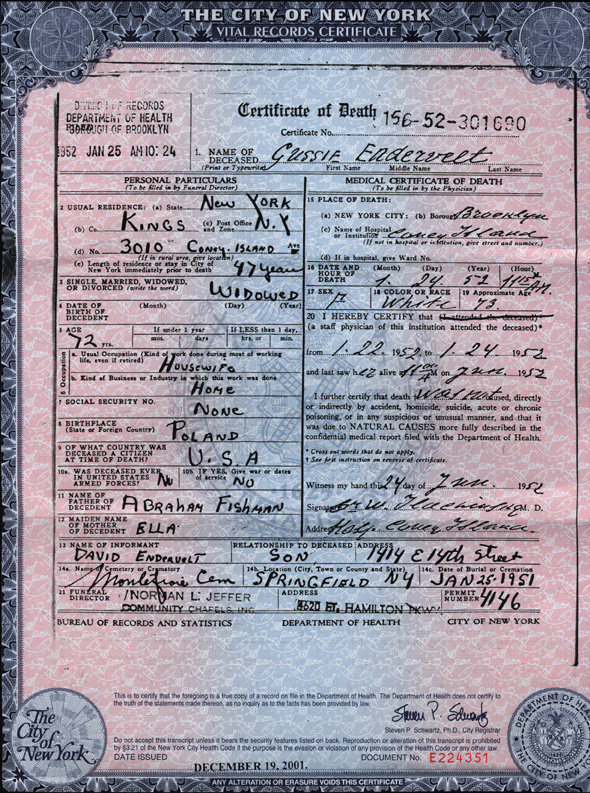 THE CITY OF NEW YORK
VITAL RECORDS CERTIFICATE
RECORDS
DEPARTMENT OF HEALTH
BOROUGH OF BROOKLYN
1952 JAN 25 AM 10:24
Certificate of Death
Certificate No. 156-52-301690
1. NAME OF DECEASED Gussie Endervelt
(Print or Typewrite) First Name Middle Name Last Name
PERSONAL PARTICULARS
(To be filled in by Funeral Director)
2 USUAL RESIDENCE: (a) State New York
(b) Co. KINGS (c) Post Office and Zone N.Y
(d) No. 3010 CONEY-ISLAND Ave
(If in rural area, give location)
(e) Length of residence or stay in City of New York immediately prior to death 47 years
3 SINGLE, MARRIED, WIDOWED, OR DIVORCED (write the word) WIDOWED
4 DATE OF BIRTH OF DECEDENT (Month) (Day) (Year)
5 AGE 72 yrs. If under 1 year mos. days If LESS than 1 day, hrs. or min.
6 Occupation
a. Usual Occupation (Kind of work done during most of working life, even if retired) HOUSEWIFE
b. Kind of Business or Industry in which this work was done HOME
7 SOCIAL SECURITY NO. NONE
8 BIRTHPLACE (State or Foreign Country) POLAND
9 OF WHAT COUNTRY WAS DECEASED A CITIZEN AT TIME OF DEATH? U.S.A
10a. WAS DECEASED EVER IN UNITED STATES ARMED FORCES? No 10b. IF YES, Give war or dates of service NO
11 NAME OF FATHER OF DECEDENT ABRAHAM FISHMAN
12 MAIDEN NAME OF MOTHER OF DECEDENT ELLA
MEDICAL CERTIFICATE OF DEATH
(To be filled in by the Physician)
15 PLACE OF DEATH:
(a) NEW YORK CITY: (b) Borough Brooklyn
(c) Name of Hospital or Institution Coney Island
(If not in hospital or institution, give street and number.)
(d) If in hospital, give Ward No.
16 DATE AND HOUR OF DEATH (Month) (Day) (Year) (Hour)
1 24 52
17 SEX F 18 COLOR OR RACE White 19 Approximate Age 73
20 I HEREBY CERTIFY that (I attended the deceased)*
(a staff physician of this institution attended the deceased)*
from 1-22 1952 to 1-24 1952
and last saw her alive at on Jan. 1952
I further certify that death was not caused, directly
or indirectly by accident, homicide, suicide, acute or chronic
poisoning, or in any suspicious or unusual manner, and that it
was due to NATURAL CAUSES more fully described in the
confidential medical report filed with the Department of Health.
* Cross out words that do not apply.
† See first instruction on reverse of certificate.
Witness my hand this 24 day of Jan. 1952
Signature M. D.
Address Hosp. Coney Island
13 NAME OF INFORMANT RELATIONSHIP TO DECEASED ADDRESS
DAVID ENDERVELT SON 1414 E 14th Street
14a. Name of Cemetery or Crematory 14b. Location (City, Town or County and State) 14c. Date of Burial or Cremation
Montefiore Cem SPRINGFIELD NY JAN 25-1951
21 FUNERAL DIRECTOR NORMAN L. JEFFER ADDRESS PERMIT NUMBER 4146
COMMUNITY CHAPELS, INC. 4620 FT. HAMILTON PKWY
BUREAU OF RECORDS AND STATISTICS DEPARTMENT OF HEALTH CITY OF NEW YORK
This is to certify that the foregoing is a true copy of a record on file in the Department of Health. The Department of Health does not certify to
the truth of the statements made thereon, as no inquiry as to the facts has been provided by law.
Steven P. Schwartz
Steven P. Schwartz, Ph.D., City Registrar
The City of New York
Do not accept this transcript unless it bears the security features listed on back. Reproduction or alteration of this transcript is prohibited
by §3.21 of the New York City Health Code if the purpose is the evasion or violation of any provision of the Health Code or any other law.
DATE ISSUED DOCUMENT No. E224351
DECEMBER 19, 2001.
DEPARTMENT OF HEALTH
THE CITY OF NEW YORK
ANY ALTERATION OR ERASURE VOIDS THIS CERTIFICATE